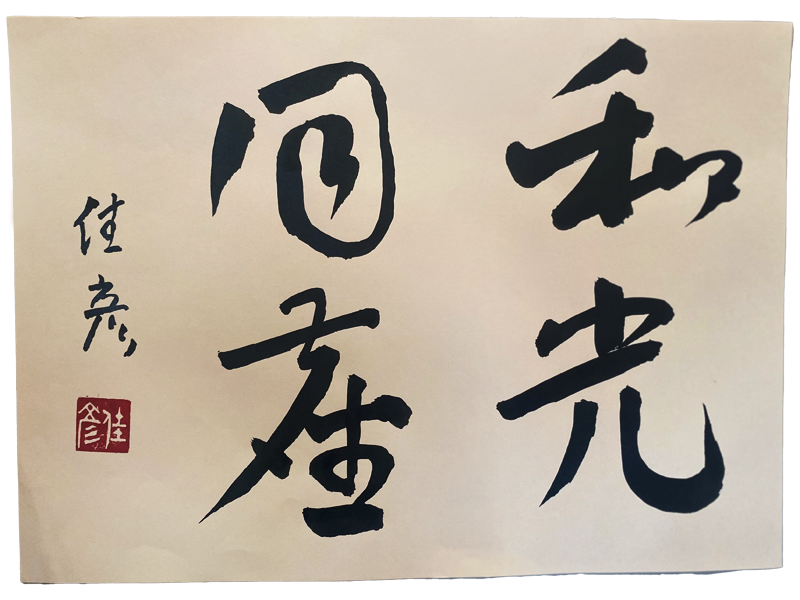 和光
同塵
佳彥
佳彥